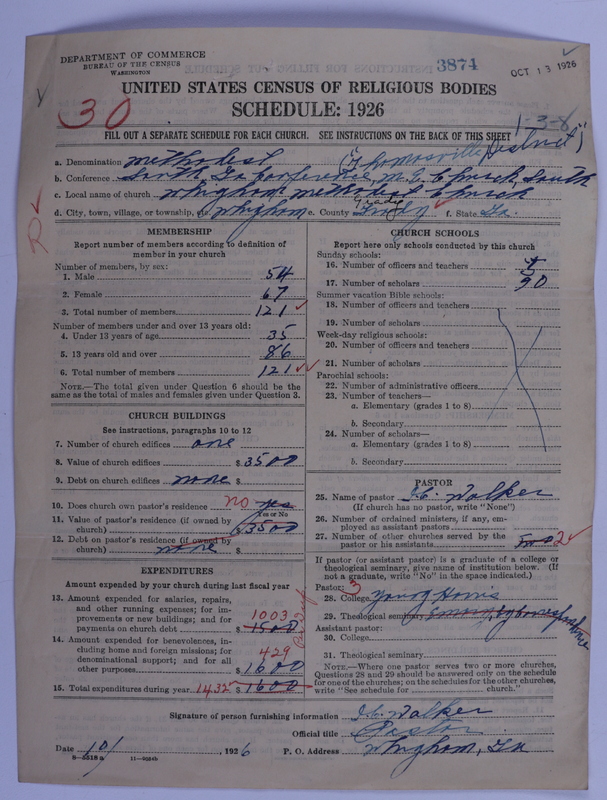 DEPARTMENT OF COMMERCE
BUREAU OF THE CENSUS
WASHINGTON
3874
OCT 13 1926
UNITED STATES CENSUS OF RELIGIOUS BODIES
SCHEDULE: 1926
30
1-3-8
FILL OUT A SEPARATE SCHEDULE FOR EACH CHURCH. SEE INSTRUCTIONS ON THE BACK OF THIS SHEET
a. Denomination Methodist (Thomasville District)
b. Conference South Ga Conference, M.E. Church, South
c. Local name of church Whigham Methodist Church
d. City, town, village, or township, etc. Whigham e. County Grady f. State Ga.
R
MEMBERSHIP
Report number of members according to definition of member in your church
Number of members, by sex:
1. Male 54
2. Female 67
3. Total number of members 121
Number of members under and over 13 years old:
4. Under 13 years of age 35
5. 13 years old and over 86
6. Total number of members 121
NOTE.—The total given under Question 6 should be the same as the total of males and females given under Question 3.
CHURCH BUILDINGS
See instructions, paragraphs 10 to 12
7. Number of church edifices one
8. Value of church edifices $ 3500
9. Debt on church edifices none $
10. Does church own pastor's residence no yes
Yes or No
11. Value of pastor's residence (if owned by church) $ 3500
12. Debt on pastor's residence (if owned by church) none $
EXPENDITURES
Amount expended by your church during last fiscal year
13. Amount expended for salaries, repairs, and other running expenses; for improvements or new buildings; and for payments on church debt $ 1500
1003
14. Amount expended for benevolences, including home and foreign missions; for denominational support; and for all other purposes $ 1600
429
15. Total expenditures during year 1432 $ 1600
CHURCH SCHOOLS
Report here only schools conducted by this church
Sunday schools:
16. Number of officers and teachers
17. Number of scholars 90
Summer vacation Bible schools:
18. Number of officers and teachers
19. Number of scholars
Week-day religious schools:
20. Number of officers and teachers
21. Number of scholars
Parochial schools:
22. Number of administrative officers
23. Number of teachers—
a. Elementary (grades 1 to 8)
b. Secondary
24. Number of scholars—
a. Elementary (grades 1 to 8)
b. Secondary
PASTOR
25. Name of pastor J.C. Walker
(If church has no pastor, write "None")
26. Number of ordained ministers, if any, employed as assistant pastors
27. Number of other churches served by the pastor or his assistants 2
If pastor (or assistant pastor) is a graduate of a college or theological seminary, give name of institution below. (If not a graduate, write "No" in the space indicated.)
Pastor: 3
28. College Young Harris
29. Theological seminary Emory, by Correspondence
Assistant pastor:
30. College
31. Theological seminary
NOTE.—Where one pastor serves two or more churches, Questions 28 and 29 should be answered only on the schedule for one of the churches; on the schedules for the other churches, write "See schedule for church."
Signature of person furnishing information J.C. Walker
Official title Pastor
Date 10/, 1926 P. O. Address Whigham, Ga
8-5318 a 11-9594b